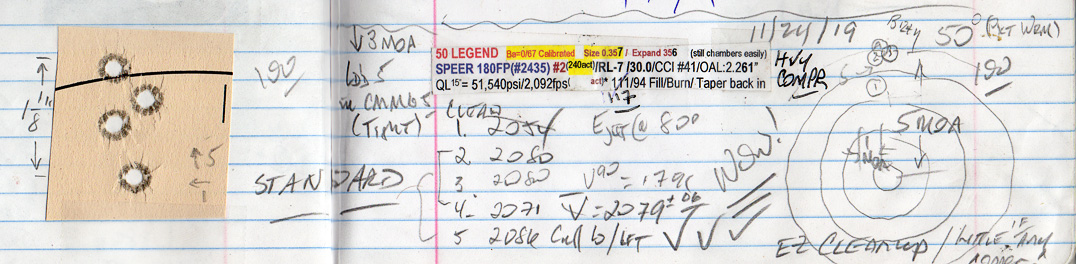 ↓3 MOA
11/24/19
50° (
190
LDD 5
in CMMG 5
(TIGHT)
50 LEGEND Ba=0/67 Calibrated Size 0.357 / Expand 356 (still chambers easily)
SPEER 180FP(#2435) #2 (240act) /RL-7 /30.0/CCI #41/OAL:2.261"
QL15°= 51,540psi/2,092fps( act)* 111/94 Fill/Burn/ Taper back in
117
HVY
COMPR
190
1 1/8"
STANDARD
CLEAN
1. 2054
2 2080
3 2080
4- 2071
5 2086 Call b/LFT
EJCT @ 800
V90 = 1796
V = 2079 ± 06
WOW!
5 MOA
5
1
1
EZ CLEANUP / LITTLE IF ANY